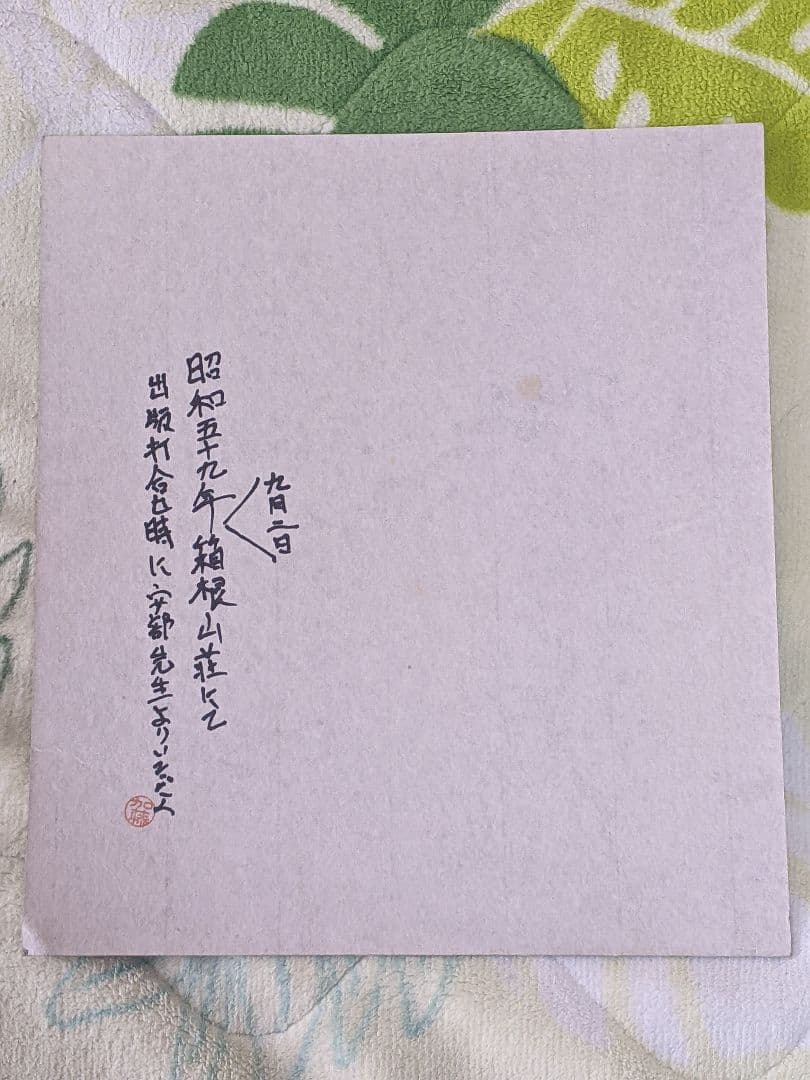 九月二日
昭和五十九年箱根山荘にて
出版打合せ時に安部先生よりいただく
加藤